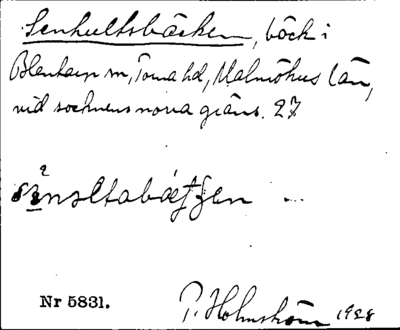 Senhultsbäcken, bäck i
Blentarp sn, Torna hd, Malmöhus län,
vid socknens norra gräns. 27
Nr 5831.
P. Holmström 1928